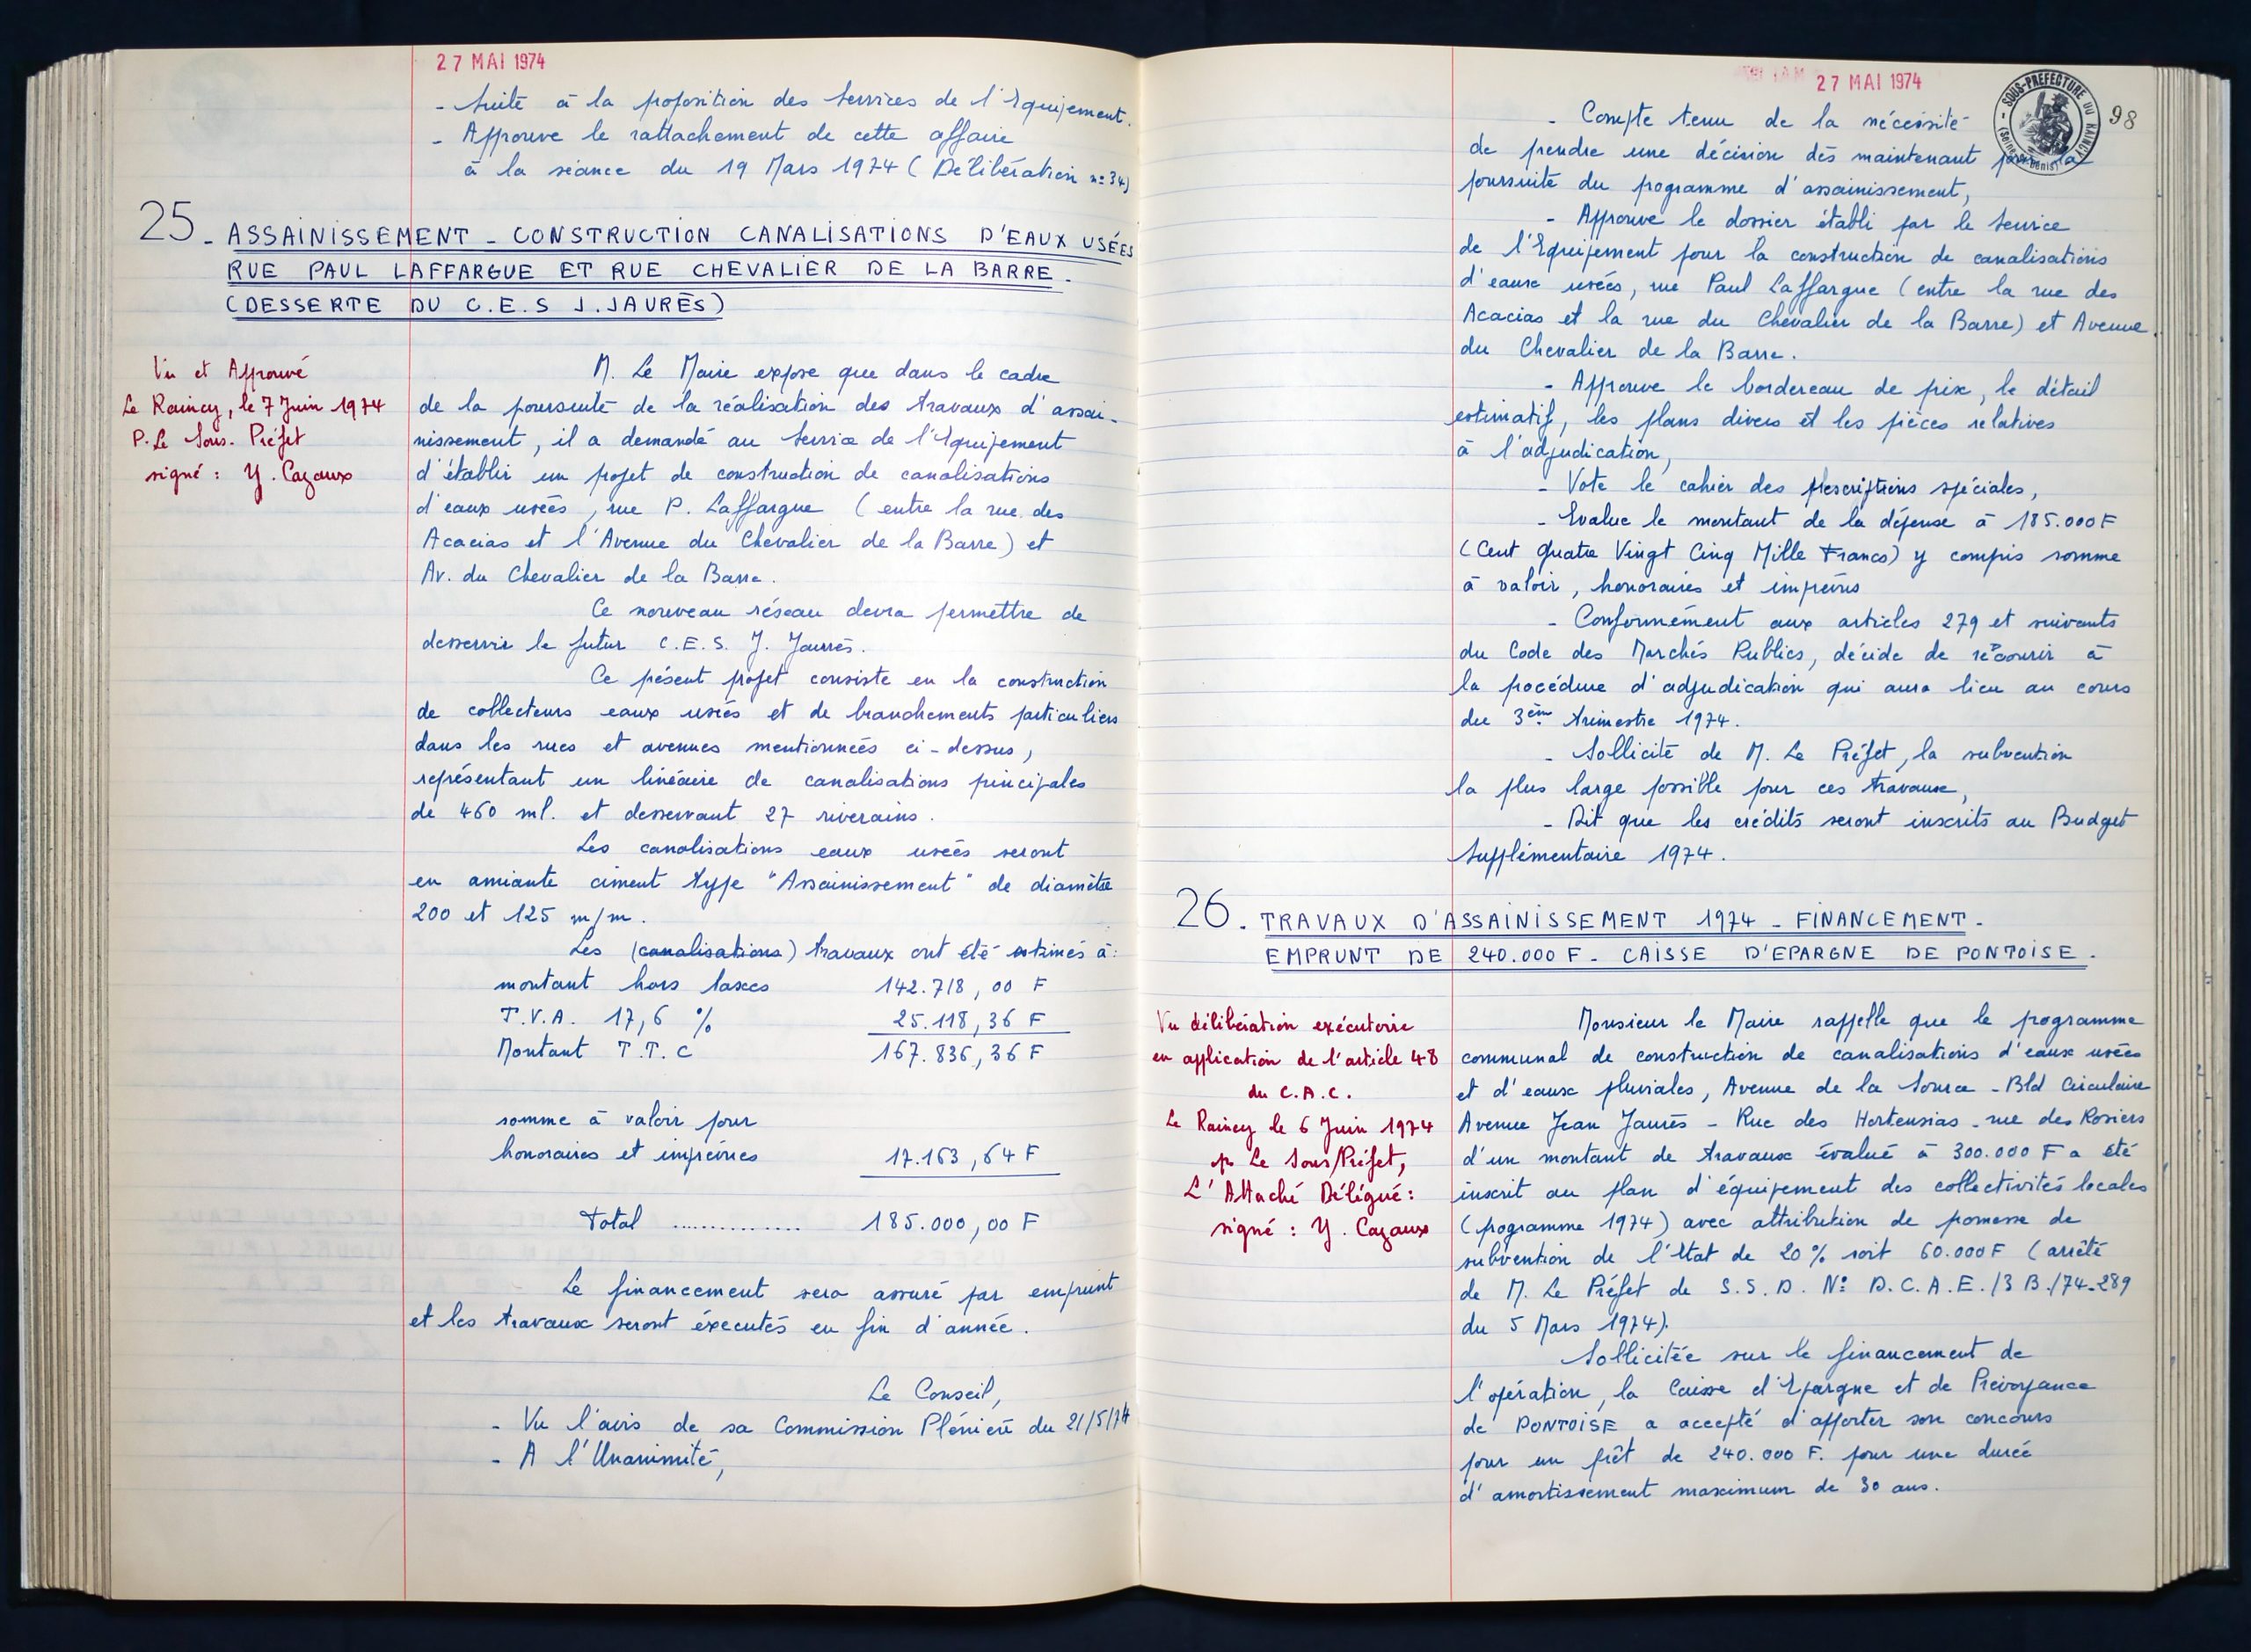 27 MAI 1974
- Suite à la proposition des Services de l'Equipement.
- Approuve le rattachement de cette affaire
à la séance du 19 Mars 1974 (Délibération n° 34)
25. ASSAINISSEMENT - CONSTRUCTION CANALISATIONS D'EAUX USÉES
RUE PAUL LAFFARGUE ET RUE CHEVALIER DE LA BARRE.
(DESSERTE DU C.E.S J.JAURÈS)
Vu et Approuvé
Le Raincy, le 7 Juin 1974
P. Le Sous-Préfet
signé : Y. Cazaux
M. Le Maire expose que dans le cadre
de la poursuite de la réalisation des travaux d'assai-
nissement, il a demandé au Service de l'Equipement
d'établir un projet de construction de canalisations
d'eaux usées, rue P. Laffargue (entre la rue des
Acacias et l'Avenue du Chevalier de la Barre) et
Av. du Chevalier de la Barre.
Ce nouveau réseau devra permettre de
desservir le futur C.E.S. J. Jaurès.
Ce présent projet consiste en la construction
de collecteurs eaux usées et de branchements particuliers
dans les rues et avenues mentionnées ci-dessus,
représentant un linéaire de canalisations principales
de 460 ml. et desservant 27 riverains.
Les canalisations eaux usées seront
en amiante ciment type "Assainissement" de diamètre
200 et 125 m/m.
Les (canalisations) travaux ont été estimés à :
montant hors taxes 142.718,00 F
T.V.A. 17,6 % 25.118,36 F
Montant T.T.C 167.836,36 F
somme à valoir pour
honoraires et imprévus 17.163,64 F
Total .............. 185.000,00 F
Le financement sera assuré par emprunt
et les travaux seront éxecutés en fin d'année.
Le Conseil,
- Vu l'avis de sa Commission Plénière du 21/5/74
- A l'Unanimité,
27 MAI 1974
SOUS-PREFECTURE DU RAINCY
98
- Compte tenu de la nécessité
de prendre une décision dès maintenant pour la
poursuite du programme d'assainissement,
- Approuve le dossier établi par le Service
de l'Equipement pour la construction de canalisations
d'eaux usées, rue Paul Laffargue (entre la rue des
Acacias et la rue du Chevalier de la Barre) et Avenue
du Chevalier de la Barre.
- Approuve le bordereau de prix, le détail
estimatif, les plans divers et les pièces relatives
à l'adjudication,
- Vote le cahier des prescriptions spéciales,
- Evalue le montant de la dépense à 185.000 F
(Cent Quatre Vingt Cinq Mille Francs) y compris somme
à valoir, honoraires et imprévus
- Conformément aux articles 279 et suivants
du Code des Marchés Publics, décide de recourir à
la procédure d'adjudication qui aura lieu au cours
du 3ème trimestre 1974.
- Sollicite de M. Le Préfet, la subvention
la plus large possible pour ces travaux,
- Dit que les crédits seront inscrits au Budget
Supplémentaire 1974.
26. TRAVAUX D'ASSAINISSEMENT 1974 - FINANCEMENT -
EMPRUNT DE 240.000 F - CAISSE D'EPARGNE DE PONTOISE.
Vu délibération exécutoire
en application de l'article 48
du C.A.C.
Le Raincy le 6 Juin 1974
p. Le Sous/Préfet,
L'Attaché Délégué :
signé : Y. Cazaux
Monsieur le Maire rappelle que le programme
communal de construction de canalisations d'eaux usées
et d'eaux pluviales, Avenue de la Source - Bld Circulaire
Avenue Jean Jaurès - Rue des Hortensias - rue des Rosiers
d'un montant de travaux évalué à 300.000 F a été
inscrit au plan d'équipement des collectivités locales
(programme 1974) avec attribution de promesse de
subvention de l'Etat de 20 % soit 60.000 F (arrêté
de M. Le Préfet de S.S.D. N° D.C.A.E./3 B./74-289
du 5 Mars 1974).
Sollicitée sur le financement de
l'opération, la Caisse d'Epargne et de Prévoyance
de PONTOISE a accepté d'apporter son concours
pour un prêt de 240.000 F. pour une durée
d'amortissement maximum de 30 ans.